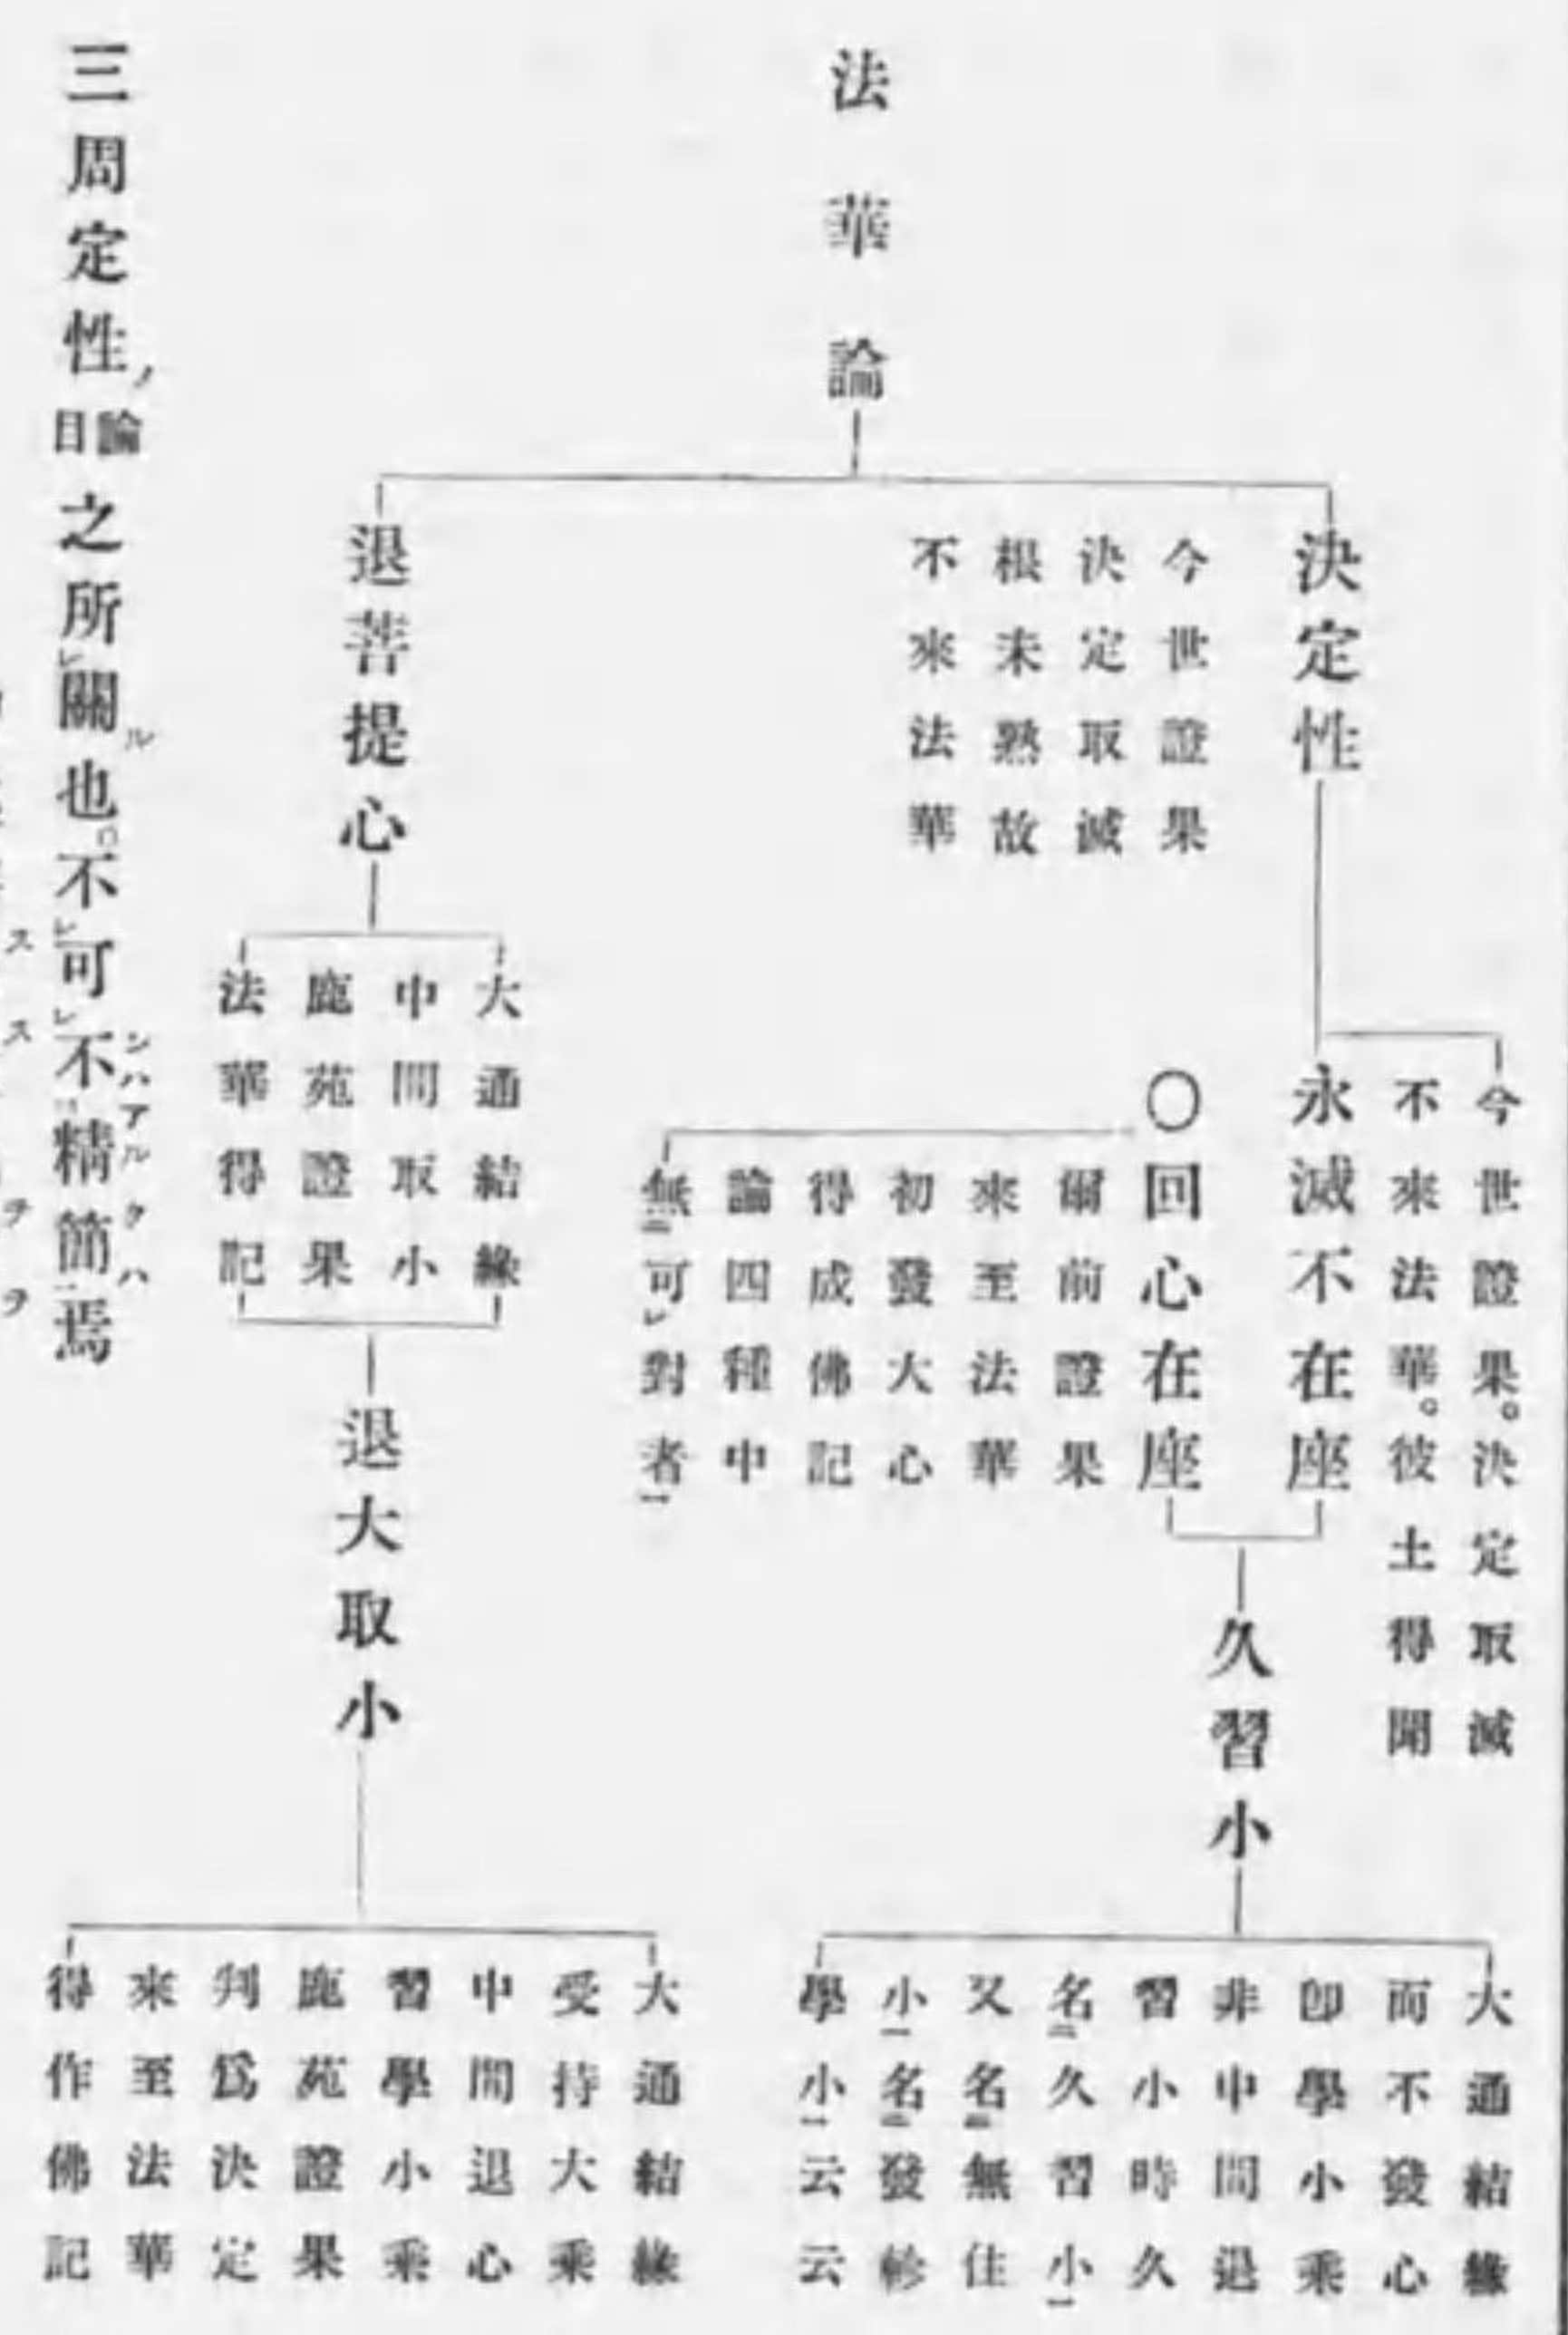 法華論
決定性
今世證果
決定取滅
根未熟故
不來法華
今世證果。決定取滅
不來法華。彼土得聞
永滅不在座
〇回心在座
爾前證果
來至法華
初發大心
得成佛記
論四種中
無二可レ對者一
久習小
大通結緣
而不發心
卽學小乘
非中間退
習小時久
名二久習小一
又名無住
小一名二發軫
學小一云云
退菩提心
大通結緣
中間取小
鹿苑證果
法華得記
退大取小
大通結緣
受持大乘
中間退心
習學小乘
鹿苑證果
判爲決定
來至法華
得作佛記
三周定性ノ論目之所レ關ル也不レ可レ不精簡焉